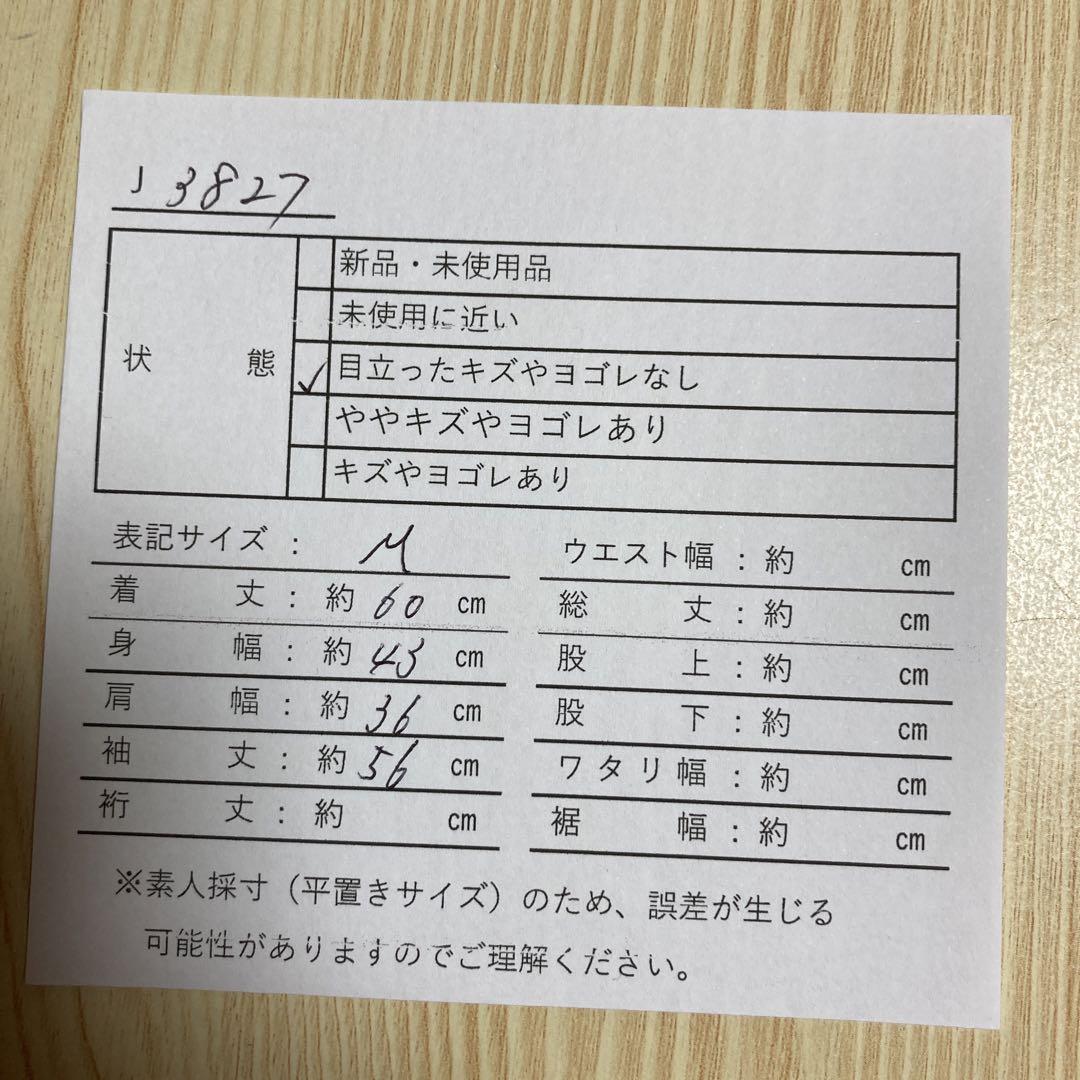 J3827
状態
新品・未使用品
未使用に近い
✓ 目立ったキズやヨゴレなし
ややキズやヨゴレあり
キズやヨゴレあり
表記サイズ : M
着丈 : 約 60 ㎝
身幅 : 約 43 ㎝
肩幅 : 約 36 ㎝
袖丈 : 約 56 ㎝
裄丈 : 約 ㎝
ウエスト幅 : 約 ㎝
総丈 : 約 ㎝
股上 : 約 ㎝
股下 : 約 ㎝
ワタリ幅 : 約 ㎝
裾幅 : 約 ㎝
※素人採寸（平置きサイズ）のため、誤差が生じる
可能性がありますのでご理解ください。